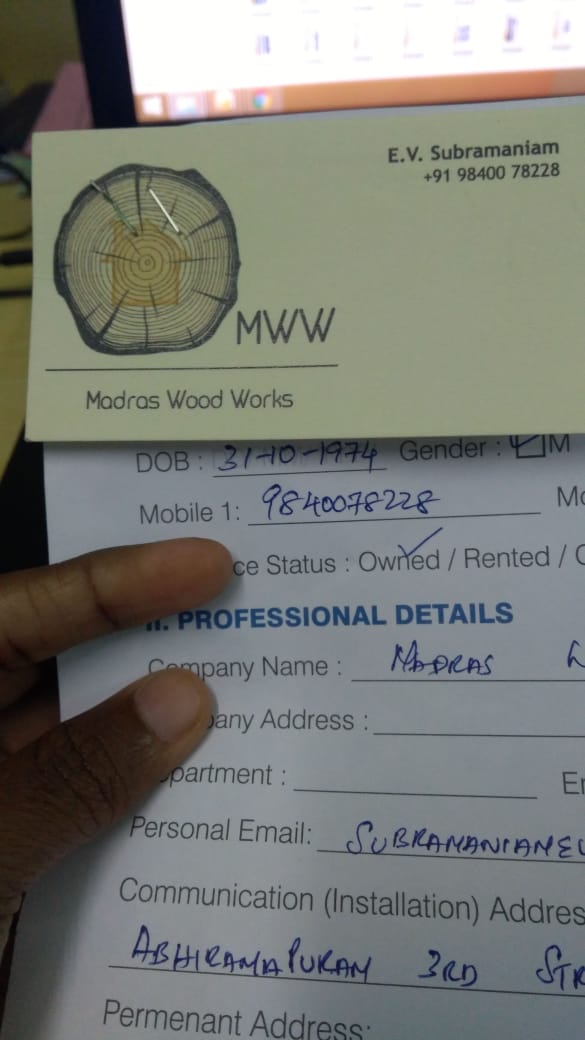 E.V. Subramaniam
+91 98400 78228
MWW
Madras Wood Works
DOB : 31-10-1974 Gender : M
Mobile 1: 9840078228
ce Status : Owned / Rented /
II. PROFESSIONAL DETAILS
Company Name : MADRAS
any Address :
partment :
Personal Email: SUBRAMANIAMEV
Communication (Installation) Addres
ABHIRAMAPURAM 3RD STR
Permenant Address: